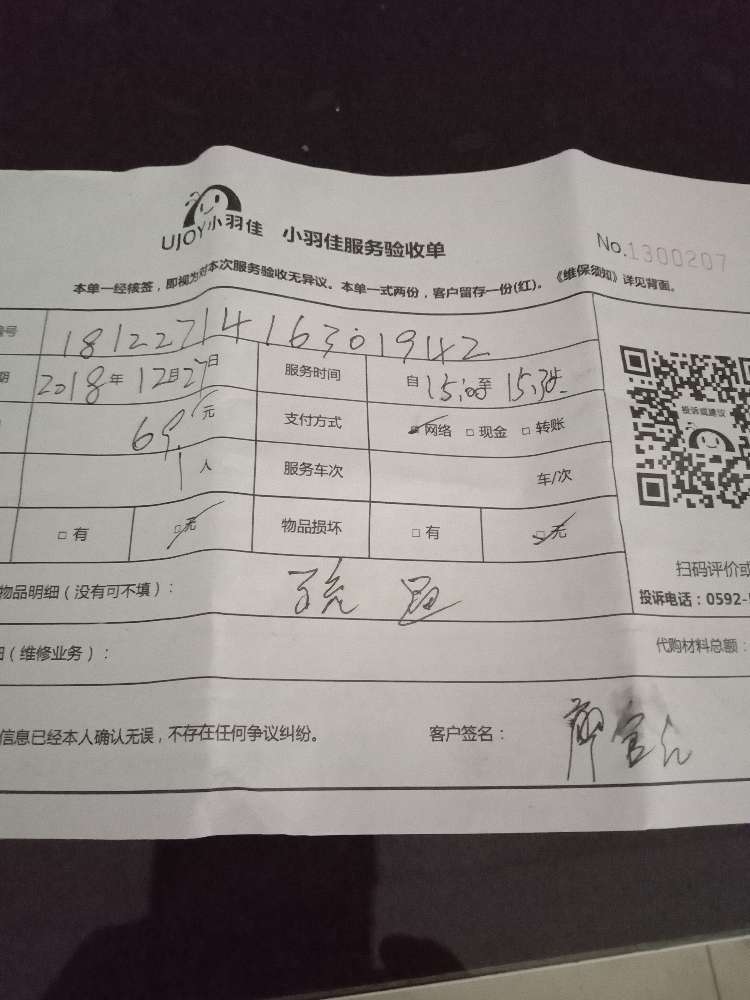 UJOY小羽佳 小羽佳服务验收单
No.1300207
本单一经核签，即视为对本次服务验收无异议。本单一式两份，客户留存一份(红)。《维保须知》详见背面。
编号 1812271416301942
期 2018年12月27日 服务时间 自15:00至15:34
69.元 支付方式 网络 现金 转账
1人 服务车次 车/次
投诉或建议
有 无 物品损坏 有 无
扫码评价或
物品明细（没有可不填）：
投诉电话：0592-
（维修业务）： 代购材料总额：
信息已经本人确认无误，不存在任何争议纠纷。 客户签名：